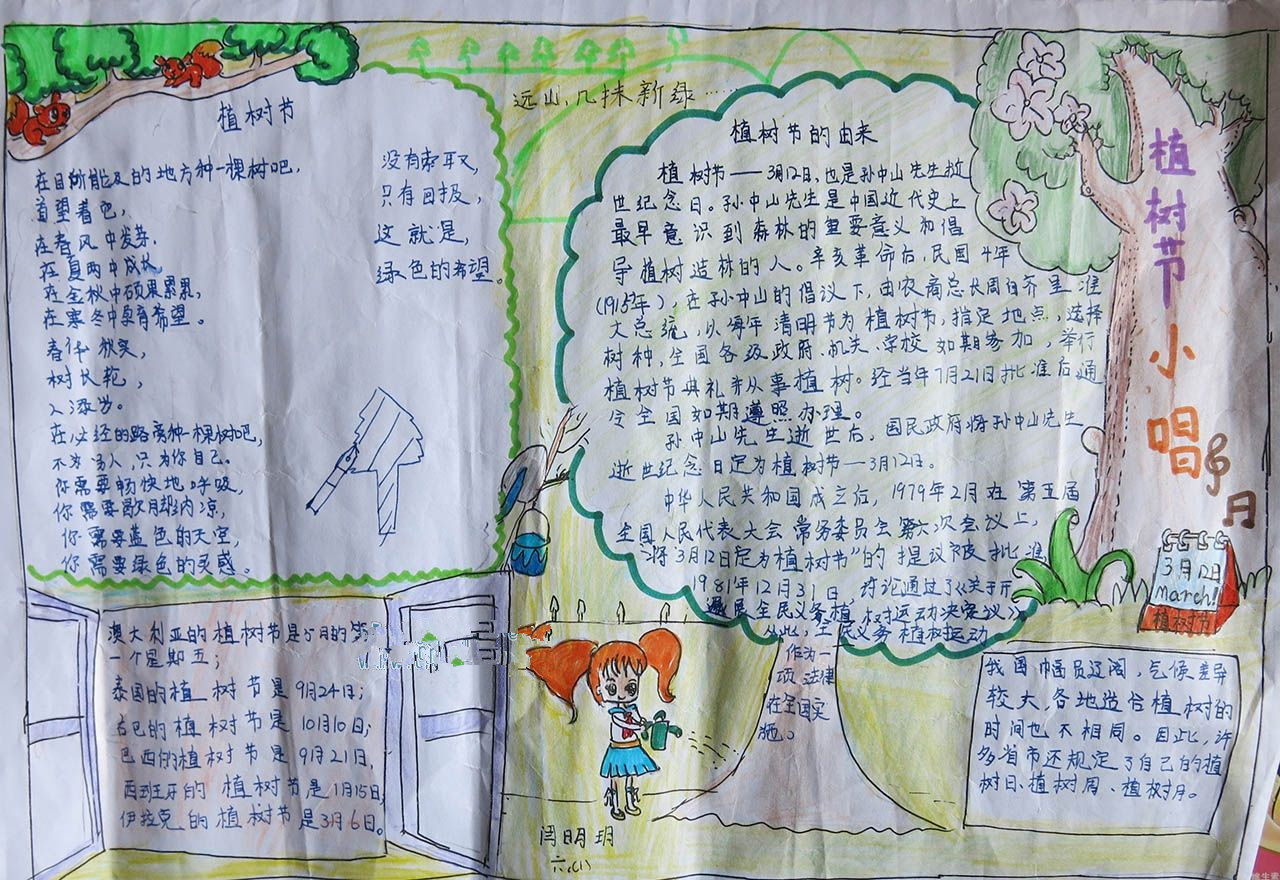 植树节
在目所能及的地方种一棵树吧,
首望着吧,
在春风中发芽,
在夏雨中成长
在金秋中硕果累累,
在寒冬中孕育希望。
春华秋实,
树长轮,
人添岁。
在必经的路旁种一棵树吧,
不为易人,只为你自己。
你需要畅快地呼吸,
你需要歇脚纳凉,
你需要蓝色的天空,
你需要绿色的灵感。
没有索取,
只有回报,
这就是,
绿色的希望。
远山,几抹新绿……
植树节的由来
植树节——3月12日,也是孙中山先生逝
世纪念日。孙中山先生是中国近代史上
最早意识到森林的重要意义和倡
导植树造林的人。辛亥革命后,民国4年
(1915年),在孙中山的倡议下,由农商总长周自齐呈准
大总统,以每年清明节为植树节,指定地点,选择
树种,全国各级政府、机关、学校如期参加,举行
植树节典礼并从事植树。经当年7月21日批准后通
令全国如期遵照办理。
孙中山先生逝世后,国民政府将孙中山先生
逝世纪念日定为植树节——3月12日。
中华人民共和国成立后,1979年2月在第五届
全国人民代表大会常务委员会第六次会议上,
将3月12日定为植树节”的提议被批准
1981年12月31日 讨论通过了《关于开
展全民义务植树运动决策议》
从此,全民义务植树运动
作为一
项法律
在全国实
施。
植树节小唱
3月12日
March!
植树节
澳大利亚的植树节是5月的第
一个星期五;
泰国的植树节是9月24日;
古巴的植树节是10月10日;
巴西的植树节是9月21日,
西班牙的植树节是1月15日,
伊拉克的植树节是3月6日。
闫明玥
六(1)
我国幅员辽阔,气候差异
较大,各地适合植树的
时间也不相同。因此,许
多省市还规定了自己的植
树日、植树周、植树月。